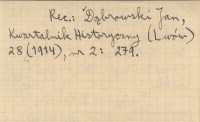 Rec.: Dąbrowski Jan,
Kwartalnik Historyczny (Lwów)
28 (1914), nr 2: 279.